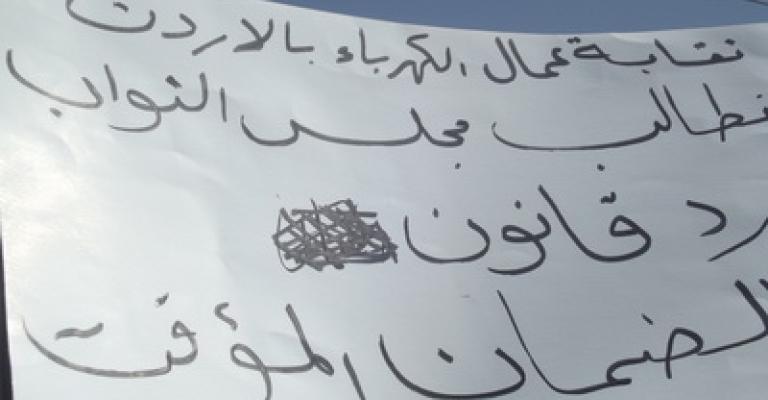 نقابة عمال الكهرباء بالاردن
نطالب مجلس النواب
رد قانون
الضمان المؤقت